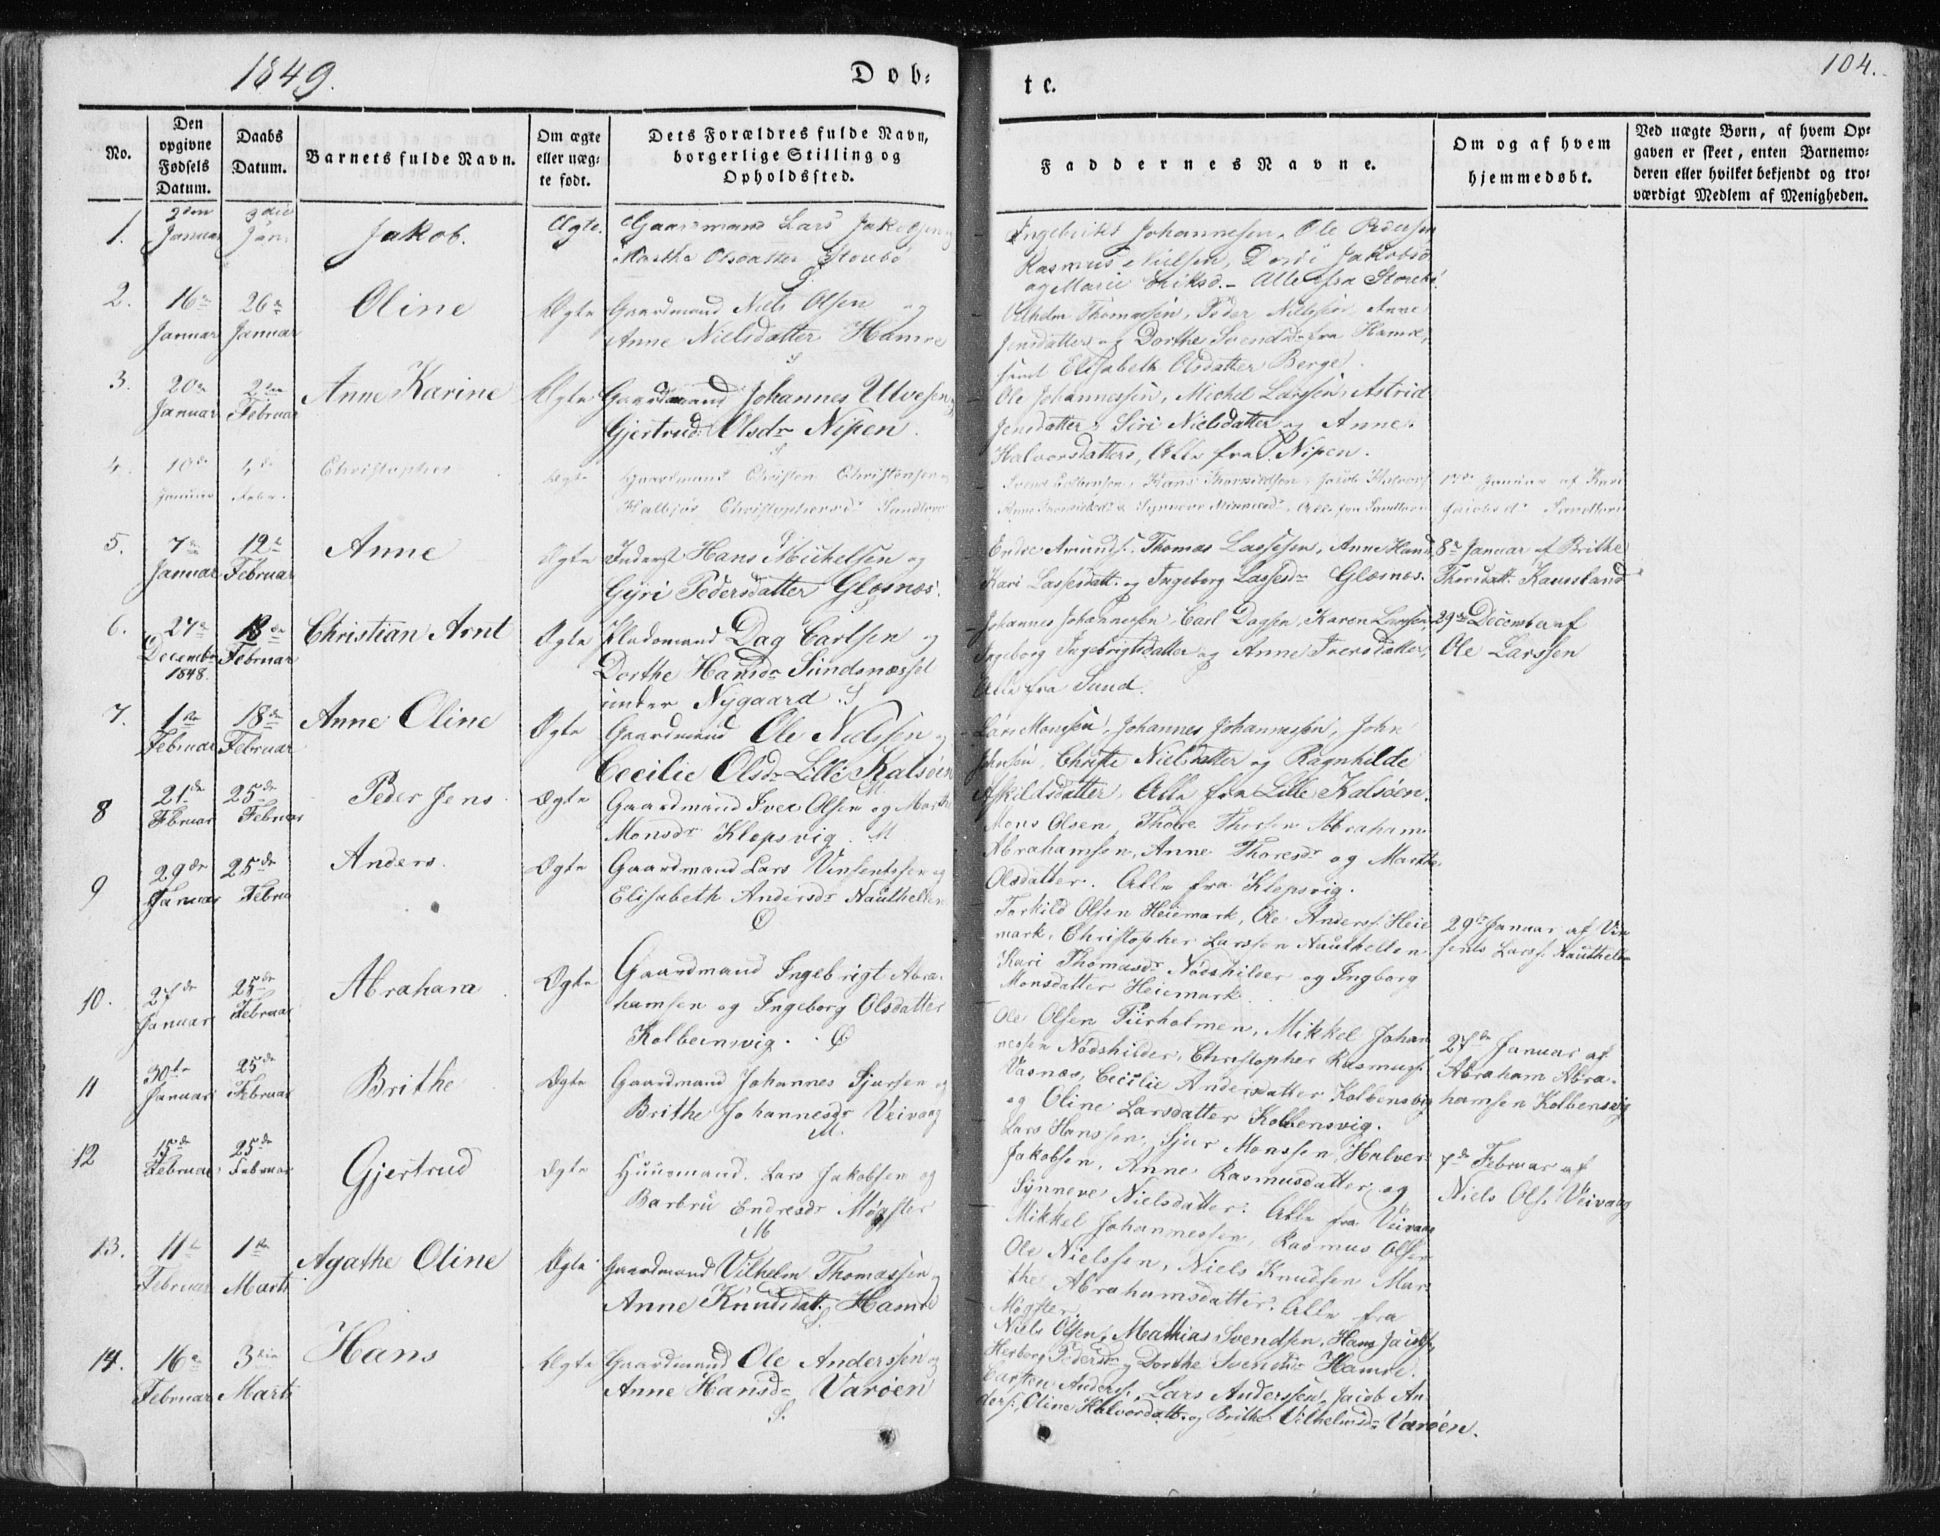 1849.
Døb=
te.
104.
No.
Den opgivne Fødsels Datum.
Daabs Datum.
Barnets fulde Navn.
Om ægte eller uæg= te født.
Dets Forældres fulde Navn, borgerlige Stilling og Opholdssted.
Faddernes Navne.
Om og af hvem hjemmedøbt.
Ved uægte Børn, af hvem Op= gaven er skeet, enten Barnemo= deren eller hvilket bekjendt og tro= værdigt Medlem af Menigheden.
1.
Januar
Jan.
Jakob.
Ægte.
Gaardmand Lars
Marthe Olsdatter
Ingebrigt Johannesen, Ole Pedersen
Rasmus Nielsen,
og Marie Eriksd. – Alle fra
2.
16de
Januar
26de
Januar
Oline
Ægte
Gaardmand Niels Olsen og
Anne Nielsdatter Hamre
S
Vilhelm Thomassen, Peder Nielssen Anne
Jensdatter og Dorthe Svendsdr fra Hamre,
samt Elisabeth Olsdatter Berge.
3.
20de
Januar
2den
Februar
Anne Karine
Ægte
Gaardmand Johannes Utvesen
Gjertrud Olsdr Nipen.
S
Ole Johannessen, Michel Larssen, Astrid
Jensdatter, Siri Nielsdatter og Anne
Halvorsdatter, Alle fra Nipen.
4.
10de
Januar
4de
Christopher
Ægte
Gaardmand Christen Christensen og
Christophersdr Sandtorv
Januar af Kari
Jacobsd
5.
7de
Januar
12te
Februar
Anne
Ægte
Inderst Hans Mickelsen og
Gyri Pedersdatter Glesnes.
Endre Amunds. Thomas Lassesen, Anne Hansd
Kari Lassesdatt. og Ingeborg Lassesdr Glesnes.
8de Januar af Brithe
Thorsdatt. Kausland
6.
27de
December
1848.
18de
Februar
Christian Arnt
Ægte
Pladsmand Dag Carlsen og
Dorthe Hansdr Sundsnesset
under Nygaard. S
Johannes Johannessen, Carl Dagsen, Karen Larsdr
Ingeborg Ingebrigtsdatter og Anne Iversdatter,
Alle fra Sund.
29de December af
Ole Larssen
7.
1ste
Februar
18de
Februar
Anne Oline
Ægte
Gaardmand Ole Nielssen og
Cecilie Olsdr Lille Kalsøen
M
Lars Monssen, Johannes Johannessen, John
Johnsen, Christe Nielsdatter og Ragnhilde
Askildsdatter, Alle fra Lille Kalsøen.
8
21de
Februar
25de
Februar
Peder Jens
Ægte
Gaardmand Iver Olsen og Marthe
Monsdr Klepsvig. M
Mons Olsen, Thore Thorsen Abraham
Abrahamsen, Anne Thoresdr og Marthe
Olsdatter. Alle fra Klepsvig.
9
29de
Januar
25de
Februar
Anders.
Ægte
Gaardmand Lars Vinsentssen og
Elisabeth Andersdr Nauthellen
Ø
Torkild Olsen Heiemark, Ole Anders. Heie
mark, Christopher Larssen Nauthellen
Kari Thomasdr Nødshilder og Ingborg
Monsdatter Heiemark.
29de Januar af Vin
sents Larss. Nauthellen
10.
27de
Januar
25de
Februar
Abraham
Ægte
Gaardmand Ingebrigt Abra=
hamsen og Ingeborg Olsdatter
Kolbeinsvig. Ø
Ole Olsen Tiirholmen, Mikkel Johan
nessen Nødshilder, Christopher Rasmuss.
Vasnæs, Cecilie Andersdatter Kolbensvig
og Oline Larsdatter Kolbensvig.
27de Januar af
Abraham Abra=
hamsen Kolbensvig
11
30te
Januar
25de
Februar
Brithe
Ægte
Gaardmand Johannes Sjursen og
Brithe Johannesdr Veivaag
M.
Lars Hanssen, Sjur Monssen, Halver
Jakobsen, Anne Rasmusdatter og
Synneve Nielsdatter. Alle fra Veivaag
7de Februar af
Niels Ols. Veivaag
12
15de
Februar
25de
Februar
Gjertrud
Ægte
Huusmand Lars Jakobsen og
Barbru Endresdr Møgster
M
Mikkel Johannessen, Rasmus Olsen
Ole Nielssen, Niels Knudsen Mar=
the Abrahamsdatter. Alle fra
Møgster
13.
11te
Februar
1ste
Marti
Agathe Oline
Ægte
Gaardmand Vilhelm Thomassen og
Anne Knudsdatt. Hamre
S.
Niels Olsen, Mathias Svendsen, Hans
Herborg Pedersdr og Dorthe Svendsdr Hamre.
14.
16de
Februar
3die
Marti
Hans
Ægte
Gaardmand Ole Anderssen og
Anne Hansdr Varøen
S.
Carsten Anders., Lars Anderssen, Jacob An
ders., Oline Halvorsdatt. og Brithe Vilhelmsdr Varøen.